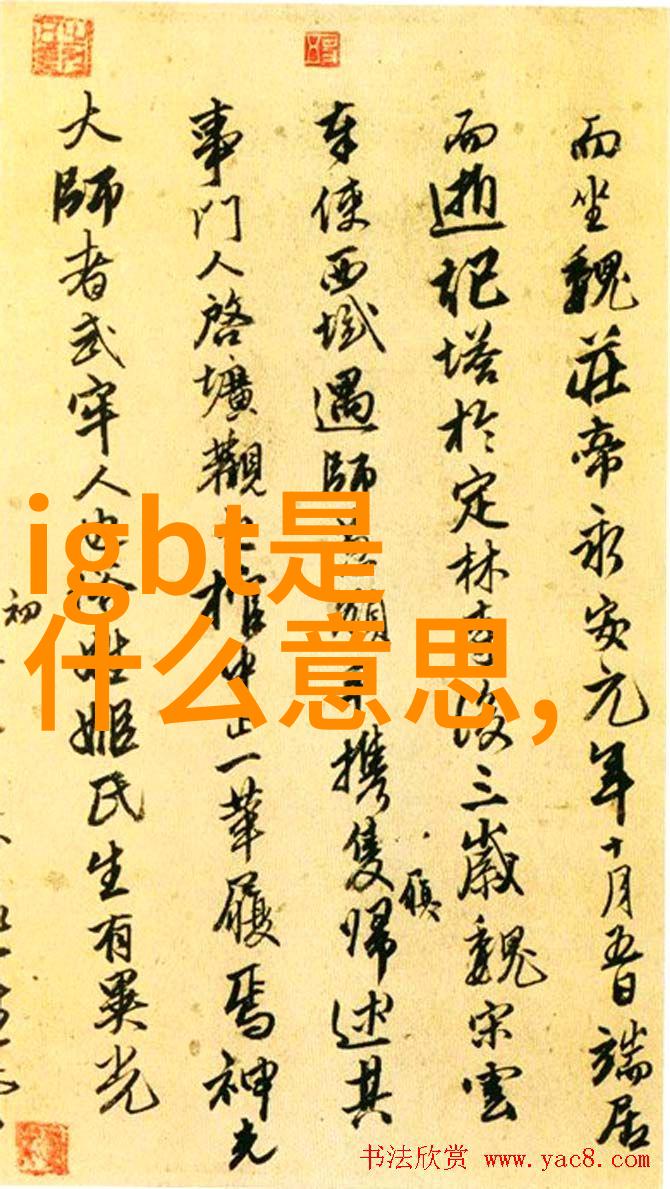 而坐魏莊帝永安元年十月五日端居
而逝記塔於定林寺後三歲魏宋雲
奉使西域遇師嶺手攜隻歸述其
履
事門人啓壙觀之棺中止一革履焉神光
大師者武牢人也俗姓姬氏生有異光
初
igbt是
什么意思,
书法欣赏 www.yac8.com